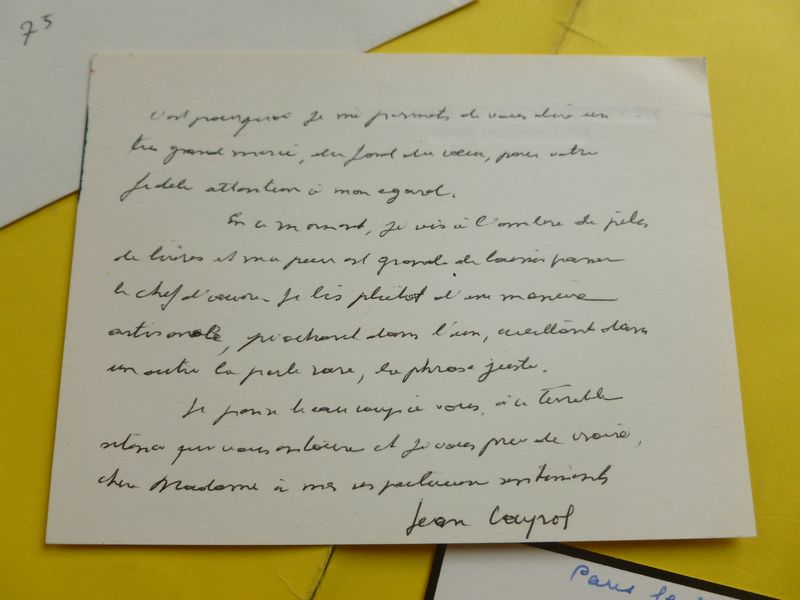 75
C'est pourquoi je me permets de vous dire un
très grand merci, du fond du cœur, pour votre
fidèle attention à mon égard.
En ce moment, je vis à l'ombre de piles
de livres et ma peur est grande de laisser passer
le chef d'œuvre. Je lis plutôt d'une manière
artisanale, piochant dans l'un, cueillant dans
un autre la perle rare, la phrase juste.
Je pense beaucoup à vous, à ce terrible
silence qui vous entoure et je vous prie de croire,
chère Madame à mes respectueux sentiments
Jean Cayrol
Paris le